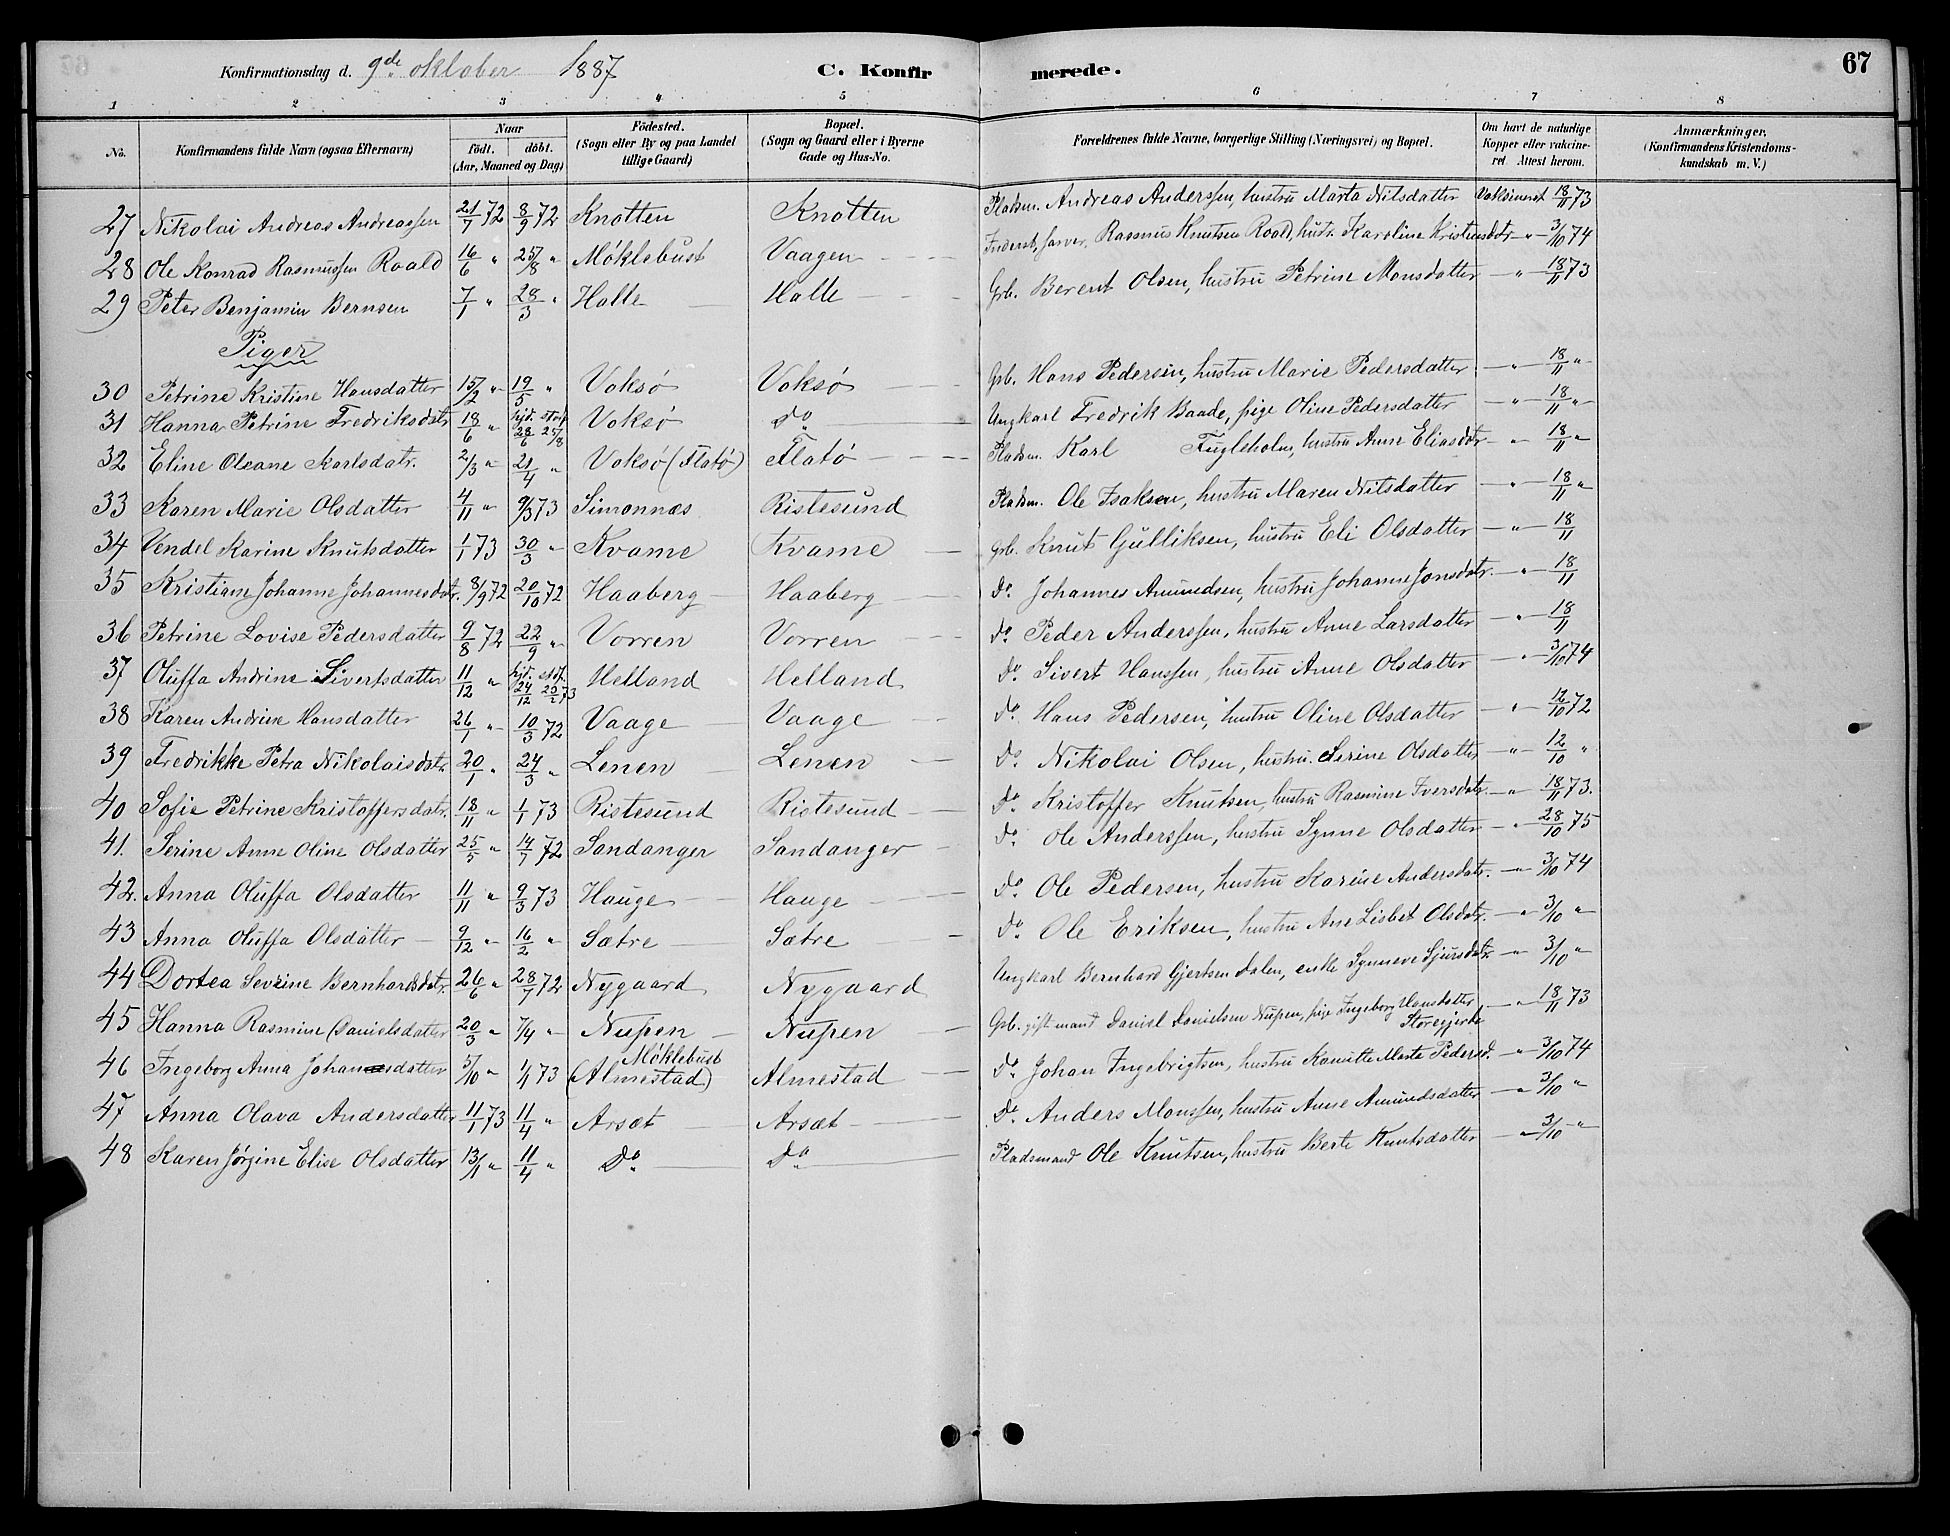 Konfirmationsdag d. 9de oktober 1887 C. Konfirmerede. 67
1 2 3 4 5 6 7 8
No. Konfirmandens fulde Navn (ogsaa Efternavn) Naar født. døbt. (Aar, Maaned og Dag) Fødested. (Sogn eller By og paa Landet tillige Gaard) Bopæl. (Sogn og Gaard eller i Byerne Gade og Hus-No. Forældrenes fulde Navne, borgerlige Stilling (Næringsvei) og Bopæl. Om havt de naturlige Kopper eller vakcineret. Attest herom. Anmærkninger. (Konfirmandens Kristendomskundskab m. V.)
27 Nikolai Andreas Andreassen 21/7 72 8/9 72 Knotten Knotten Pladsm. Andreas Anderssen, hustru Marta Nilsdatter Vaksineret 18/11 73
28 Ole Konrad Rasmussen Roald 16/6 " 25/8 " Møklebust Vaagen Inderst, farver, Rasmus Knutsen Roald, hustr. Karoline Kristensdtr — " — 3/10 74
29 Peter Benjamin Bernsen 7/1 " 28/3 " Halle Halle Grb. Berent Olsen, hustru Petrine Monsdatter — " — 18/11 73
Piger
30 Petrine Kristine Hansdatter 15/2 " 19/5 " Voksø Voksø Grb. Hans Pedersen, hustru Marie Pedersdatter — " — 18/11 "
31 Hanna Petrine Fredriksdatr 18/6 " hjd. 28/6 stdf. 25/8 Voksø Do. Ungkarl Fredrik Baade, pige Oline Pedersdatter — " — 18/11 "
32 Eline Oleane Karlsdatr. 2/3 " 21/4 " Voksø (Flatø) Flatø Pladsm. Karl Fugleholm, hustru Anne Eliasdtr — " — 18/11 "
33 Karen Marie Olsdatter 4/11 " 9/3 73 Simonnæs Ristesund Pladsm. Ole Isaksen, hustru Maren Nilsdatter — " — 18/11 "
34 Vendel Karine Knutsdatter 1/1 73 30/3 " Kvame Kvame Grb. Knut Gulliksen, hustru Eli Olsdatter — " — 18/11
35 Kristiane Johanne Johannesdatr. 8/9 72 20/10 72 Haaberg Haaberg Do. Johannes Amundsen, hustru Johanne Jonsdatr. — " — 18/11
36 Petrine Lovise Pedersdatter 9/8 72 22/9 " Vorren Vorren Do. Peder Anderssen, hustru Anne Larsdatter — " — 18/11
37 Oluffa Andrine Sivertsdatter 11/12 " hjd. 24/12 stdf. 20/2 73 Helland Helland Do. Sivert Hanssen, hustru Anne Olsdatter — " — 3/10 74
38 Karen Andrine Hansdatter 26/1 " 10/3 72 Vaage Vaage Do. Hans Pedersen, hustru Oline Olsdatter — " — 12/10 72
39 Fredrikke Petra Nikolaisdatr. 20/1 " 24/3 " Lenen Lenen Do. Nikolai Olsen, hustru Serine Olsdatter — " — 12/10 "
40 Sofie Petrine Kristoffersdatr. 18/11 " 1/1 73 Ristesund Ristesund Do. Kristoffer Knutsen, hustru Rasmine Iversdatr. — " — 18/11 73.
41. Serine Anne Oline Olsdatter 25/5 " 14/7 72 Sandanger Sandanger Do. Ole Anderssen, hustru Synne Olsdatter — " — 28/10 75
42. Anna Oluffa Olsdatter 11/11 " 9/3 73 Hauge Hauge Do. Ole Pedersen, hustru Karine Andersdatr. — " — 3/10 74
43 Anna Oluffa Olsdatter 9/12 " 16/2 " Sætre Sætre Do. Ole Eriksen, hustru Ane Lisbet Olsdatr. — " — 3/10 "
44 Dortea Severine Bernhardsdatr. 26/6 " 28/7 72 Nygaard Nygaard Ungkarl Bernhard Gjertsen Dalen, enke Synneve Sjursdatr. — " — 3/10 "
45 Hanna Rasmine Danielsdatter 20/3 " 7/4 " Nupen Nupen Grb. gift mand Daniel Danielsen Nupen, pige Ingeborg Hansdatter Storegjerde — " — 18/11 73
46 Ingeborg Anna Johansdatter 5/10 " 1/1 73 Møklebust (Almestad) Almestad Do. Johan Ingebrigtsen, hustru Kanutte Marte Pedersd. — " — 3/10 74
47 Anna Olava Andersdatter 11/1 73 11/4 " Arsæt Arsæt Do. Anders Monssen, hustru Anne Amundsdatter — " — 3/10 "
48 Karen Jørgine Elise Olsdatter 13/1 " 11/4 " Do. Do. Pladsmand Ole Knutsen, hustru Berte Knutsdatter — " — 3/10 "